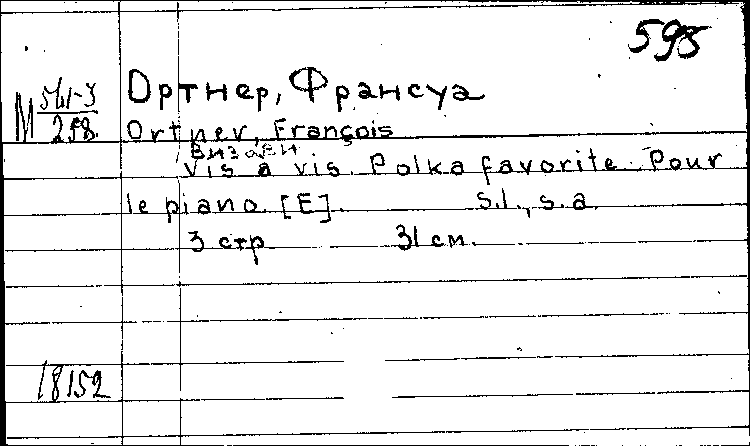 595
Ортнер, Франсуа
M
258
Ortner, François
Vis à vis. Polka favorite. Pour
le piano. [E]. s.l., s.a.
3 стр 31 см.
18152